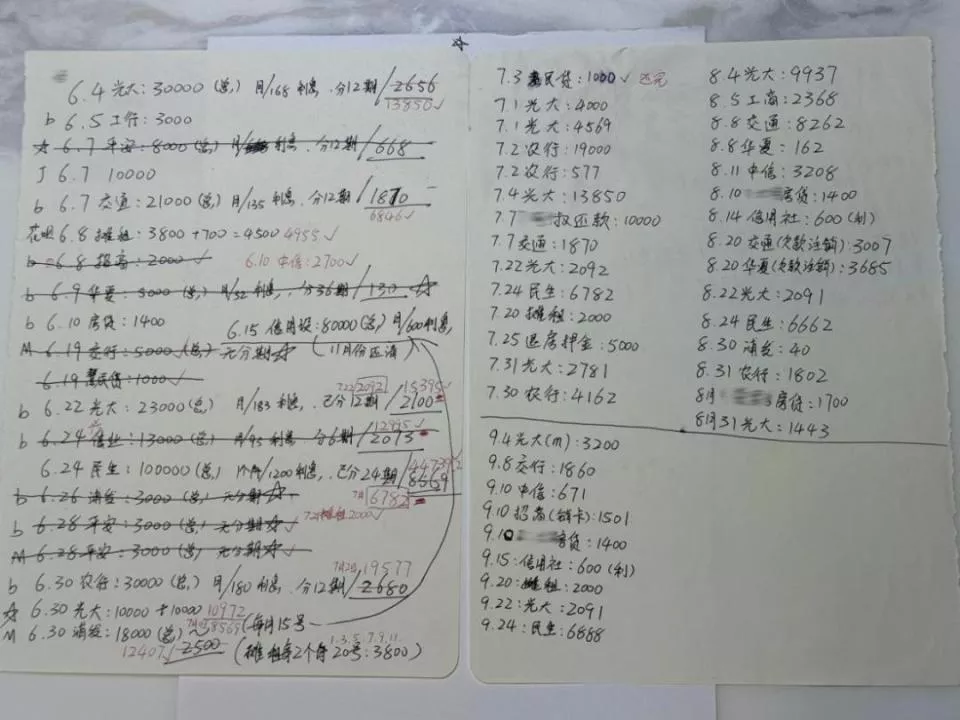 6.4 光大:30000(总) 月/168利息.分12期/2656
13850✓
b 6.5 工行:3000
☆ 6.7 平安:8000(总) 月/ 利息.分12期/668
J 6.7 10000
b 6.7 交通:21000(总) 月/135利息.分12期/1870
6846✓
花呗 6.8 摊租:3800+700=4500 4955✓
b 6.8 招商:2000✓ 6.10 中信:2700✓
b 6.9 华夏:5000(总) 月/52利息.分36期/130 ☆
b 6.10 房贷:1400
6.15 信用设:80000(总) 月/600利息,
M 6.19 交行:5000(总) 无分期☆ (11月份还清)
6.19 惠民贷:1000✓
7.22 2092 15395✓
b 6.22 光大:23000(总) 月/183利息.已分12期/2100
12995✓
b 6.24 信业:13000(总) 月/95利息.分6期/2073
6.24 民生:100000(总) 1个月/1200利息.已分24期/8669
7月6782
b 6.26 浦发:3000(总) 无分期☆
b 6.28 平安:3000(总) 无分期☆✓ 2000✓
M 6.28 平安:3000(总) 无分期☆✓
7月2日,19577
b 6.30 农行:30000(总) 月/180利息.分12期/2680
☆ 6.30 光大:10000+10000 10972
M 6.30 浦发:18000(总) 8569 (每月15号
12407✓ 2500
1.3.5.7.9.11.
(摊租每2个月20号:3800)
7.3 惠民贷:1000✓ 还完
7.1 光大:4000
7.1 光大:4569
7.2 农行:19000
7.2 农行:577
7.4 光大:13850
7.7 还款:10000
7.7 交通:1870
7.22 光大:2092
7.24 民生:6782
7.20 摊租:2000
7.25 退房押金:5000
7.31 光大:2781
7.30 农行:4162
8.4 光大:9937
8.5 工商:2368
8.8 交通:8262
8.8 华夏:162
8.11 中信:3208
8.10 房贷:1400
8.14 信用社:600(利)
8.20 交通(欠款注销):3007
8.20 华夏(欠款注销):3685
8.22 光大:2091
8.24 民生:6662
8.30 浦发:40
8.31 农行:1802
8月 房贷:1700
8月31 光大:1443
9.4 光大(m):3200
9.8 交行:1860
9.10 中信:671
9.10 招商(销卡):1501
9.10 房贷:1400
9.15:信用社:600(利)
9.20:摊租:2000
9.22:光大:2091
9.24:民生:6888